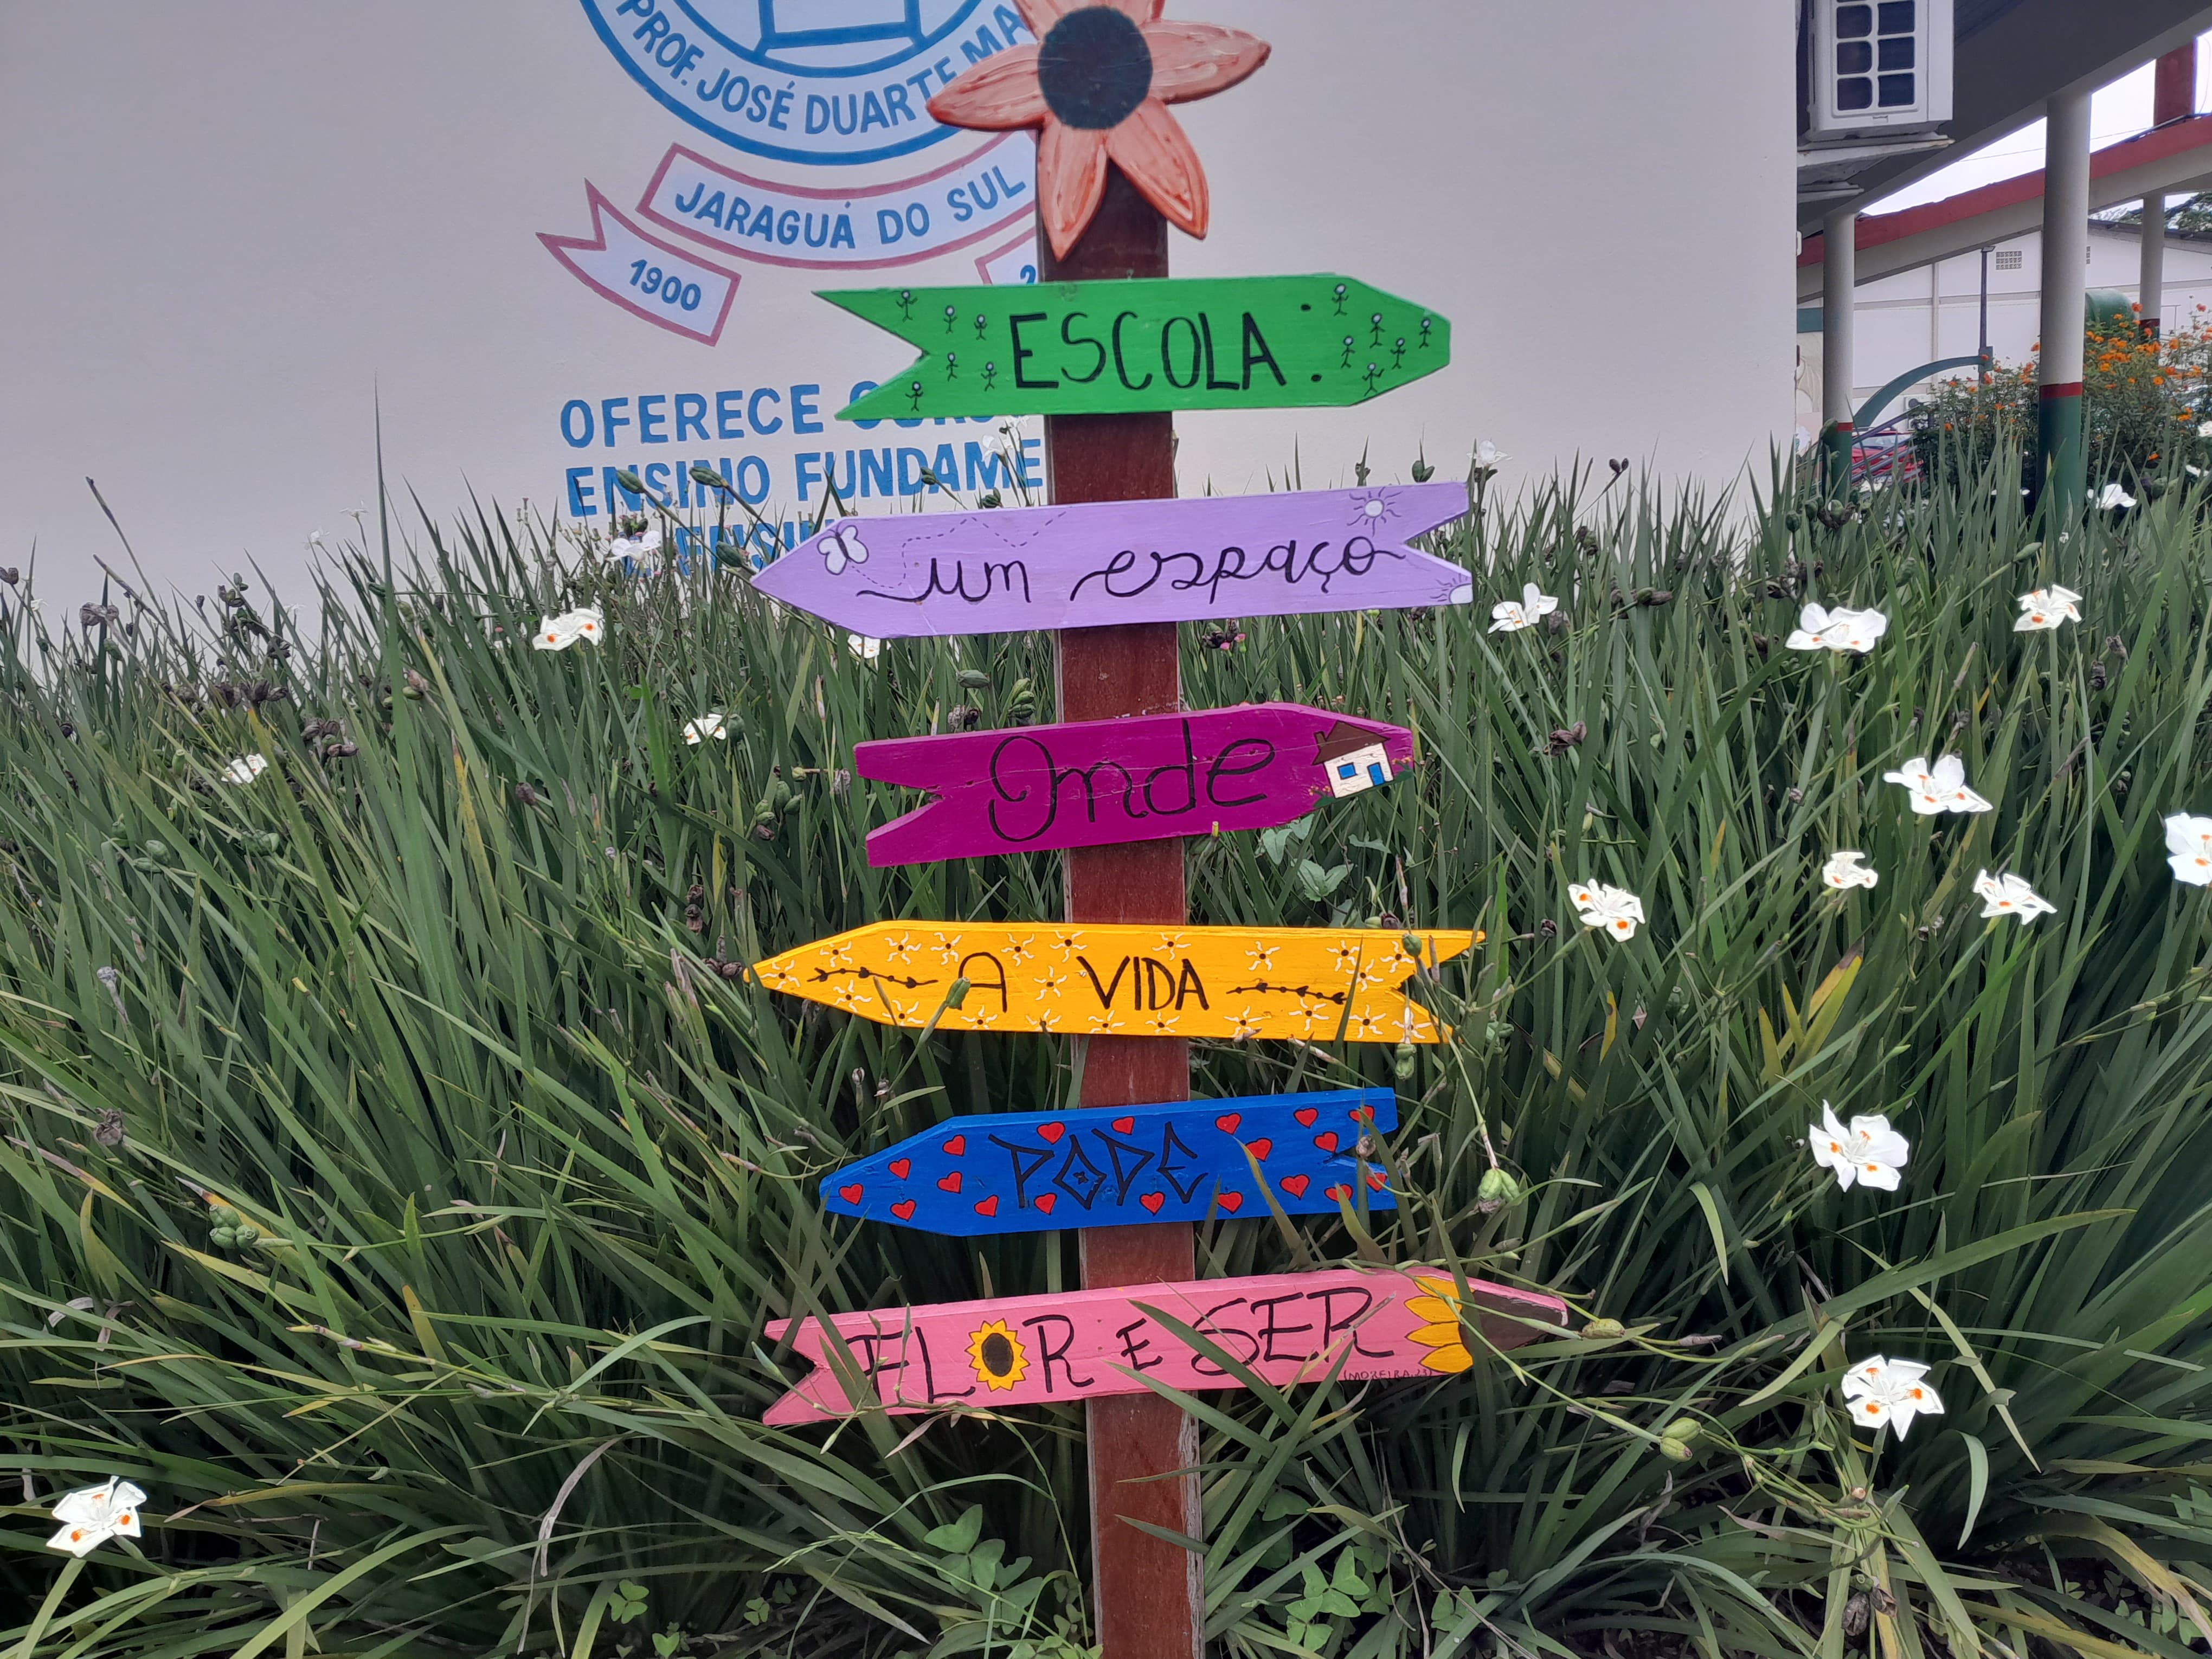 PROF. JOSÉ DUARTE MA
JARAGUÁ DO SUL
1900
OFERECE
ENSINO FUNDAME
ESCOLA:
um espaço
Onde
A VIDA
PODE
FLOR E SER
MOREIRA.23